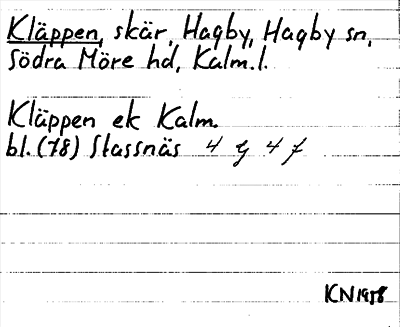 Kläppen, skär, Hagby, Hagby sn,
Södra Möre hd, Kalm.l.
Kläppen ek Kalm.
bl. (78) Stassnäs 4 g 4 f
KN 1958